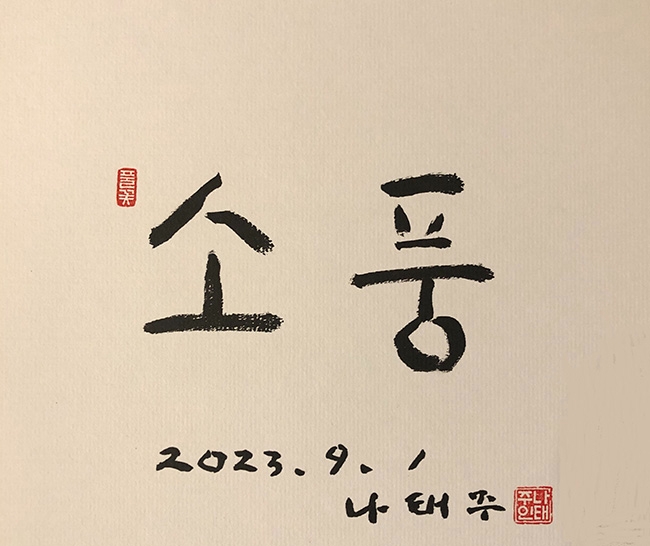 풀꽃
소풍
2023. 9. 1
나태주
나태
주인